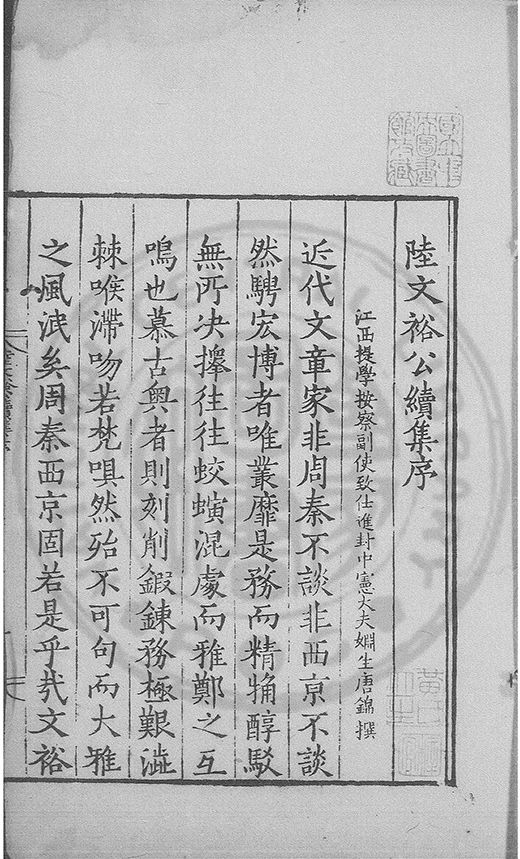 陸文裕公續集序
江西提學按察副使致仕進封中憲大夫姻生唐錦撰
近代文章家非周秦不談非西京不談
然騁宏博者唯叢靡是務而精觕醇駁
無所決擇往往蛟螾混處而雅鄭之互
鳴也慕古奧者則刻削鍜鍊務極艱澁
棘喉滯吻若梵唄然殆不可句而大雅
之風泯矣周秦西京固若是乎哉文裕